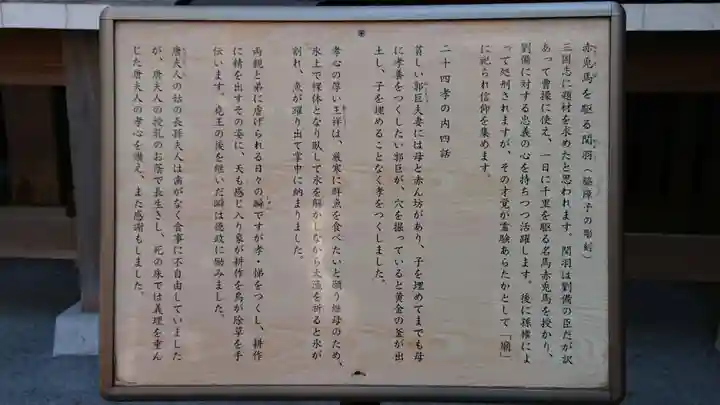 赤兎馬を駆る関羽(脇障子の彫刻)
三国志に題材を求めたと思われます。関羽は劉備の臣だが訳
あって曹操に仕え、一日に千里を駆る名馬赤兎馬を授かり、
劉備に対する忠義の心を持ちつつ活躍します。後に孫権によ
って処刑されますが、その才覚が霊験あらたかとして「廟」
に祀られ信仰を集めます。
二十四孝の内四話
貧しい郭巨夫妻には母と赤ん坊があり、子を埋めてまでも母
に孝養をつくしたい郭巨が、穴を掘っていると黄金の釜が出
土し、子を埋めることなく孝をつくしました。
孝心の厚い王祥は、厳寒に鮮魚を食べたいと願う継母のため、
氷上で裸体となり臥して氷を解かしながら大漁を祈ると氷が
割れ、魚が躍り出て掌中に納まりました。
両親と弟に虐げられる日々の瞬ですが孝・悌をつくし、耕作
に精を出すその姿に、天も感じ入り象が耕作を鳥が除草を手
伝います。堯王の後を継いだ瞬は徳政に励みました。
唐夫人の姑の長孫夫人は歯がなく食事に不自由していました
が、唐夫人の授乳のお蔭で長生きし、死の床では義理を重ん
じた唐夫人の孝心を讃え、また感謝もしました。